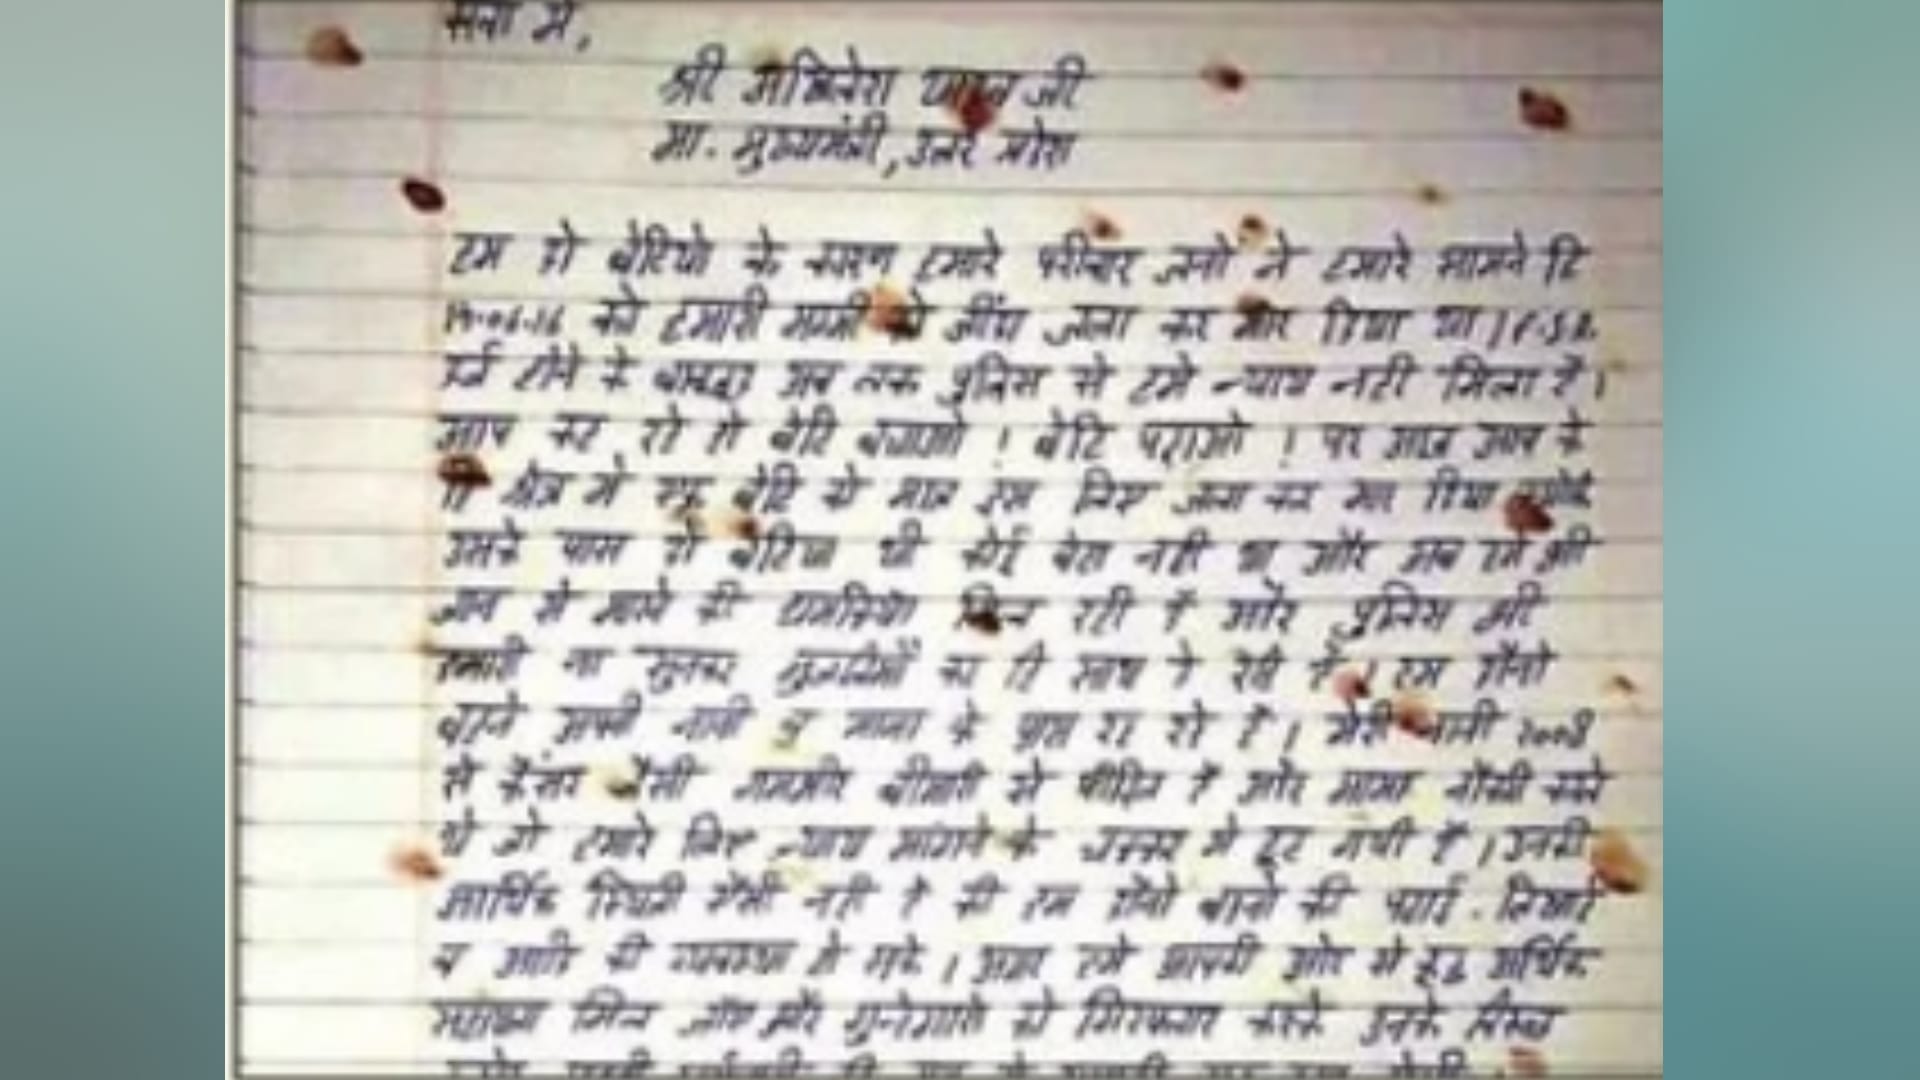 सेवा में,
श्री अखिलेश यादव जी
मा. मुख्यमंत्री, उत्तर प्रदेश
हम दो बेटियो के कारण हमारे परीवार जनो ने हमारे सामने दि
14-06-16 को हमारी मम्मी को जींदा जला कर मार दिया था। F.I.R
दर्ज होने के बावजूद अब तक पुलिस से हमे न्याय नही मिला है।
आप कह रहे हो बेटि बचाओ ! बेटि पढ़ाओ ! पर आज आप के
ही क्षेत्र मे एक बेटि को मात्र इस लिए जला कर मार दिया क्योकि
उसके पास दो बेटिया थी कोई बेटा नही था और अब हमे भी
जान से मारने की धमकिया मिल रही है और पुलिस भी
हमारी ना सुनकर मुजरिमों का ही साथ दे रही है। हम दोनो
बहने अपनी नानी व मामा के पास रह रहे है। मेरी नानी 2008
से कैंसर जैसी गम्भीर बीमारी से पीड़ित है और मामा नौकरी करते
थे जो हमारे लिए न्याय मांगने के चक्कर मे छूट गयी है। उनकी
आर्थिक स्थिती ऐसी नही है की हम दोनो बहनो की पढाई-लिखाई
व आदि की व्यवस्था हो सके। अगर हमे आपकी ओर से कुछ आर्थिक
सहायता मिल जाए और गुनेहगारो को गिरफ्तार करके उनके विरुद्ध